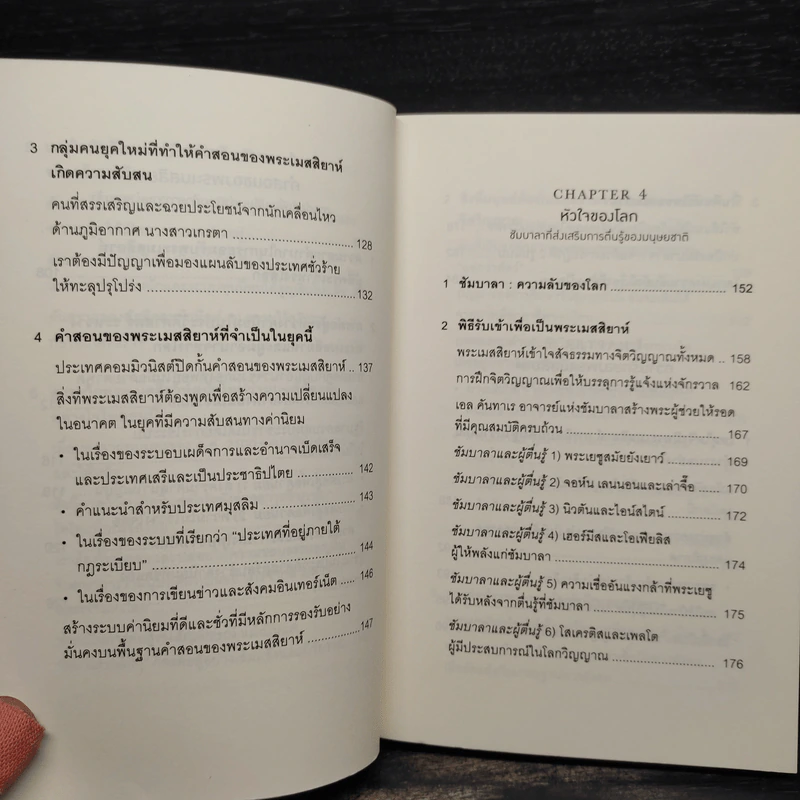 3 กลุ่มคนยุคใหม่ที่ทำให้คำสอนของพระเมสสิยาห์
เกิดความสับสน
คนที่สรรเสริญและฉวยประโยชน์จากนักเคลื่อนไหว
ด้านภูมิอากาศ นางสาวเกรตา ........................................ 128
เราต้องมีปัญญาเพื่อมองแผนลับของประเทศชั่วร้าย
ให้ทะลุปรุโปร่ง ........................................ 132
4 คำสอนของพระเมสสิยาห์ที่จำเป็นในยุคนี้
ประเทศคอมมิวนิสต์ปิดกั้นคำสอนของพระเมสสิยาห์ .. 137
สิ่งที่พระเมสสิยาห์ต้องพูดเพื่อสร้างความเปลี่ยนแปลง
ในอนาคต ในยุคที่มีความสับสนทางค่านิยม
• ในเรื่องของระบอบเผด็จการและอำนาจเบ็ดเสร็จ
และประเทศเสรีและเป็นประชาธิปไตย .................... 142
• คำแนะนำสำหรับประเทศมุสลิม ........................ 143
• ในเรื่องของระบบที่เรียกว่า "ประเทศที่อยู่ภายใต้
กฎระเบียบ" ........................................ 144
• ในเรื่องของการเขียนข่าวและสังคมอินเทอร์เน็ต ..... 146
สร้างระบบค่านิยมที่ดีและชั่วที่มีหลักการรองรับอย่าง
มั่นคงบนพื้นฐานคำสอนของพระเมสสิยาห์ ................ 147
CHAPTER 4
หัวใจของโลก
ชัมบาลาที่ส่งเสริมการตื่นรู้ของมนุษยชาติ
1 ชัมบาลา : ความลับของโลก .............................. 152
2 พิธีรับเข้าเพื่อเป็นพระเมสสิยาห์
พระเมสสิยาห์เข้าใจสัจธรรมทางจิตวิญญาณทั้งหมด .. 158
การฝึกจิตวิญญาณเพื่อให้บรรลุการรู้แจ้งแห่งจักรวาล 162
เอล คันทาเร อาจารย์แห่งชัมบาลาสร้างพระผู้ช่วยให้รอด
ที่มีคุณสมบัติครบถ้วน ................................ 167
ชัมบาลาและผู้ตื่นรู้ 1) พระเยซูสมัยยังเยาว์ ............ 169
ชัมบาลาและผู้ตื่นรู้ 2) จอห์น เลนนอนและเล่าจื๊อ ...... 170
ชัมบาลาและผู้ตื่นรู้ 3) นิวตันและไอน์สไตน์ ............ 172
ชัมบาลาและผู้ตื่นรู้ 4) เฮอร์มีสและโอเฟียลิส
ผู้ให้พลังแก่ชัมบาลา ................................ 174
ชัมบาลาและผู้ตื่นรู้ 5) ความเชื่ออันแรงกล้าที่พระเยซู
ได้รับหลังจากตื่นรู้ที่ชัมบาลา ........................ 175
ชัมบาลาและผู้ตื่นรู้ 6) โสเครติสและเพลโต
ผู้มีประสบการณ์ในโลกวิญญาณ ........................ 176